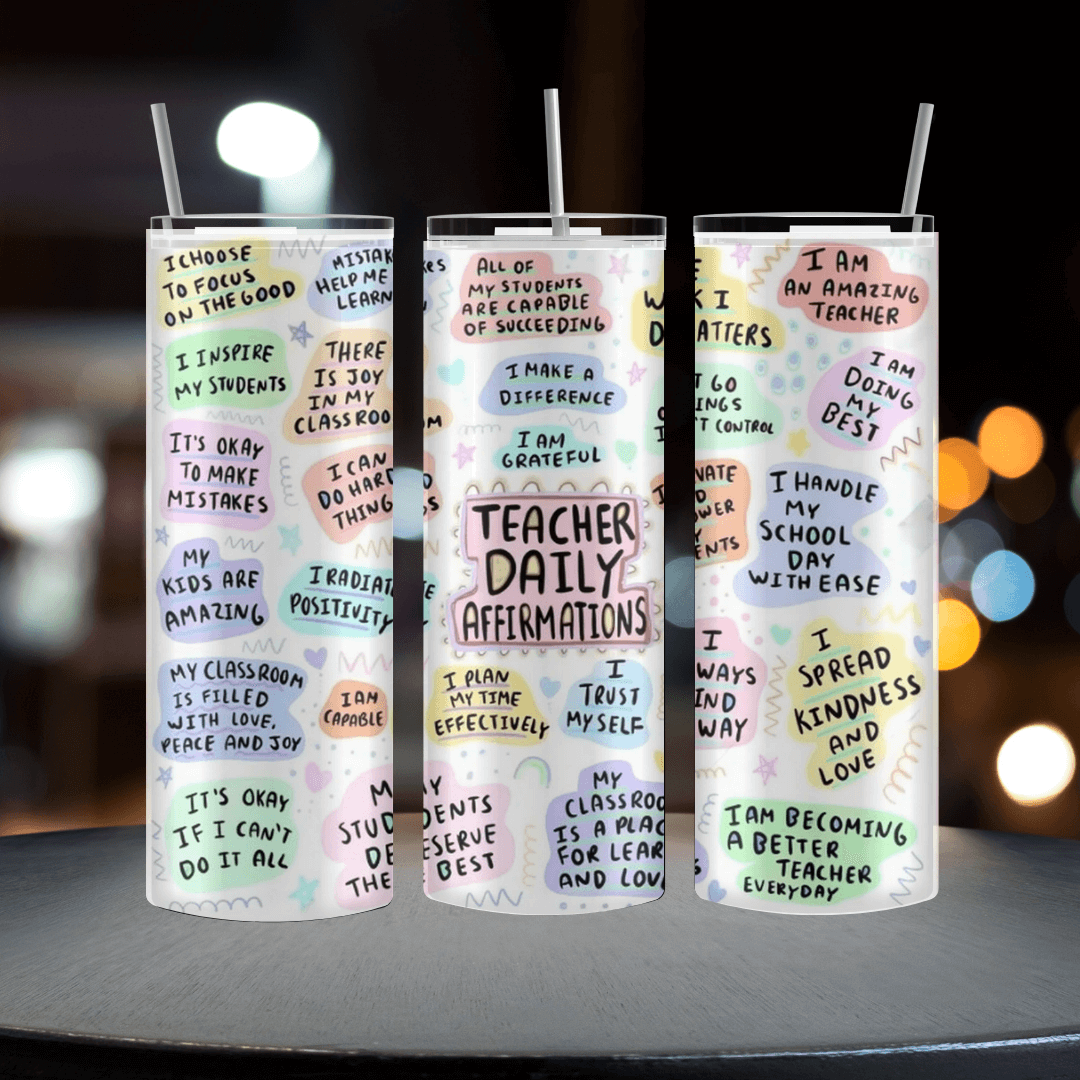 I CHOOSE
TO FOCUS
ON THE GOOD
MISTAK
HELP ME
LEARN
I INSPIRE
MY STUDENTS
THERE
IS JOY
IN MY
CLASSROO
IT'S OKAY
TO MAKE
MISTAKES
I CAN
DO HARD
THING
MY
KIDS ARE
AMAZING
I RADIAT
POSITIVITY
MY CLASSROOM
IS FILLED
WITH LOVE,
PEACE AND JOY
I AM
CAPABLE
IT'S OKAY
IF I CAN'T
DO IT ALL
M
STUD
DE
THE
KES
ALL OF
MY STUDENTS
ARE CAPABLE
OF SUCCEEDING
W
D
I MAKE A
DIFFERENCE
OM
I AM
GRATEFUL
D
GS
TEACHER
DAILY
AFFIRMATIONS
TE
I PLAN
MY TIME
EFFECTIVELY
I
TRUST
MYSELF
MY
DENTS
ESERVE
BEST
MY
CLASSROO
IS A PLAC
FOR LEAR
AND LOV
E
K I
ATTERS
I AM
AN AMAZING
TEACHER
T GO
INGS
T CONTROL
I AM
DOING
MY
BEST
VATE
D
OWER
Y
ENTS
I HANDLE
MY
SCHOOL
DAY
WITH EASE
I
WAYS
IND
WAY
I
SPREAD
KINDNESS
AND
LOVE
I AM BECOMING
A BETTER
TEACHER
EVERYDAY